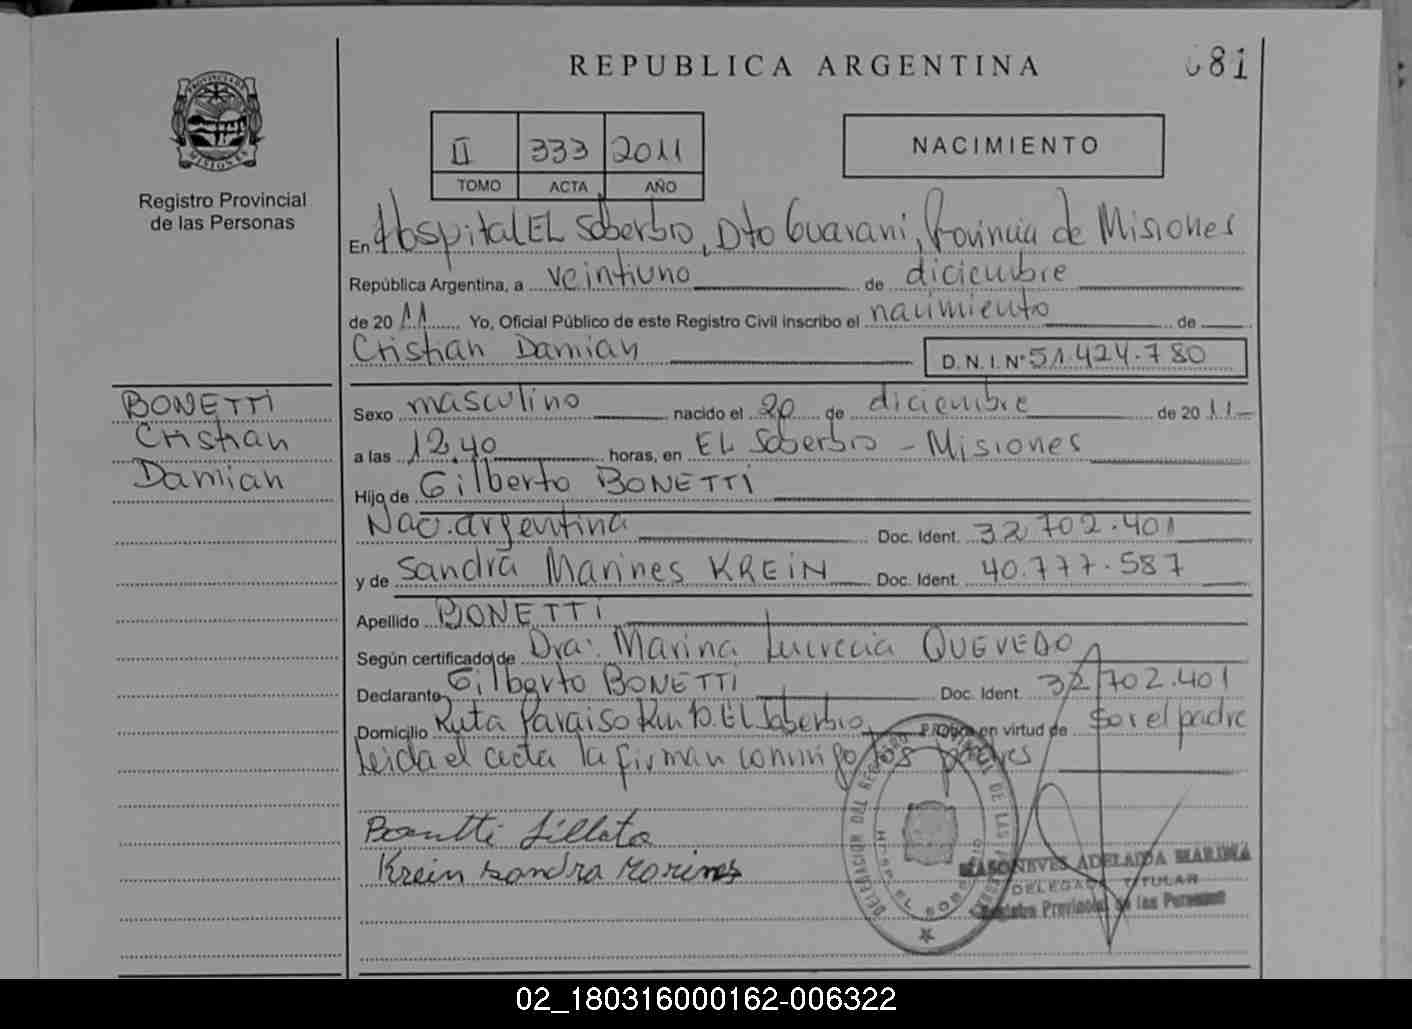 REPUBLICA ARGENTINA
081
PROVINCIA DE
MISIONES
Registro Provincial
de las Personas
II 333 2011
TOMO ACTA AÑO
NACIMIENTO
En Hospital EL Soberbio, Dto Guarani, Provincia de Misiones
República Argentina, a veintiuno de diciembre
de 2011 Yo, Oficial Público de este Registro Civil inscribo el nacimiento de
Cristian Damian D.N.I. Nº 51.424.780
BONETTI
Cristian
Damian
Sexo masculino nacido el 20 de diciembre de 2011
a las 12.40 horas, en EL Soberbio - Misiones
Hijo de Gilberto BONETTI
Nac. argentina Doc. Ident. 32.702.401
y de Sandra Marines KREIN Doc. Ident. 40.777.587
Apellido BONETTI
Según certificado de Dra: Marina Lucrecia QUEVEDO
Declarante Gilberto BONETTI Doc. Ident. 32.702.401
Domicilio Ruta Paraiso Km 10. EL Soberbio Obra en virtud de Ser el padre
Leida el acta la firman conmigo los padres
Bonetti Gilberto
Krein Sandra Marines
DELEGACION DEL REGISTRO DE LAS
EL SOBERBIO
ADELAIDA MARINA
DELEGADA TITULAR
Registro Provincial de las Personas
02_180316000162-006322